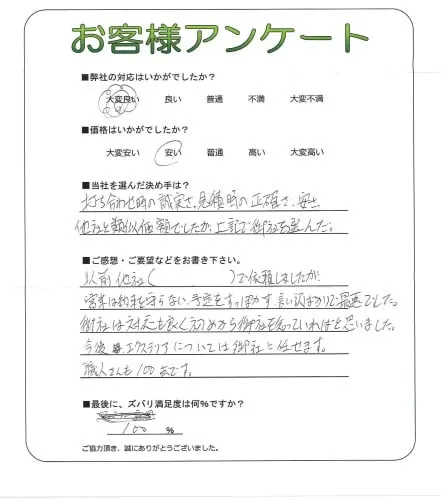 お客様アンケート
■弊社の対応はいかがでしたか?
大変良い 良い 普通 不満 大変不満
■価格はいかがでしたか?
大変安い 安い 普通 高い 大変高い
■当社を選んだ決め手は?
打ち合わせ時の誠実さ、見積時の正確さ、安さ
他社と類似価額でしたが、上記で御社を選んだ。
■ご感想・ご要望などをお書き下さい。
以前他社( )で依頼しましたが
営業は納期を守らない、予定をすっぽかす、言い訳ばかりで最悪でした。
御社は対応も良く初めから御社を知っていればと思いました。
今後エクステリアについては御社に任せます。
職人さんも100点です。
■最後に、ズバリ満足度は何%ですか?
100 %
ご協力頂き、誠にありがとうございました。